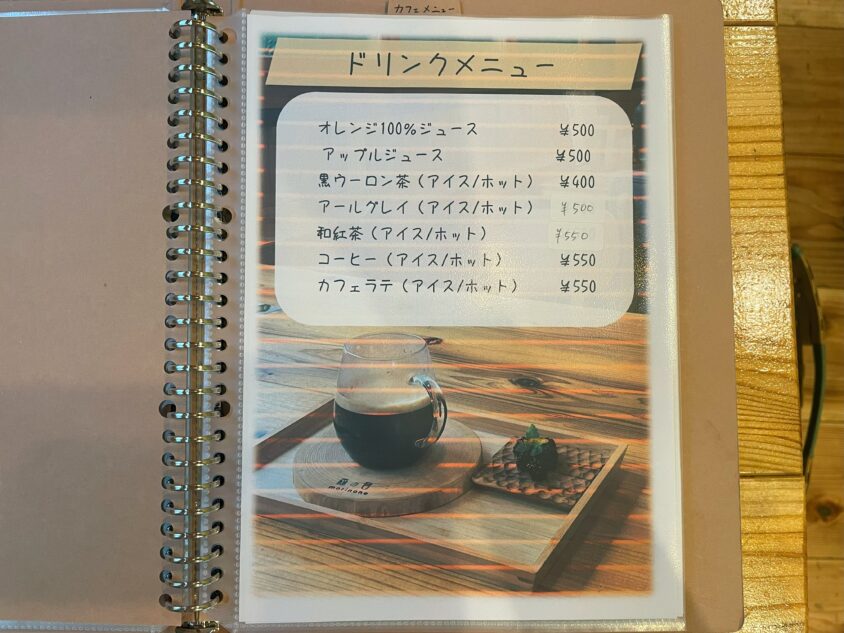 カフェメニュー
ドリンクメニュー
オレンジ100%ジュース ¥500
アップルジュース ¥500
黒ウーロン茶(アイス/ホット) ¥400
アールグレイ(アイス/ホット) ¥500
和紅茶(アイス/ホット) ¥550
コーヒー(アイス/ホット) ¥550
カフェラテ(アイス/ホット) ¥550
morinone